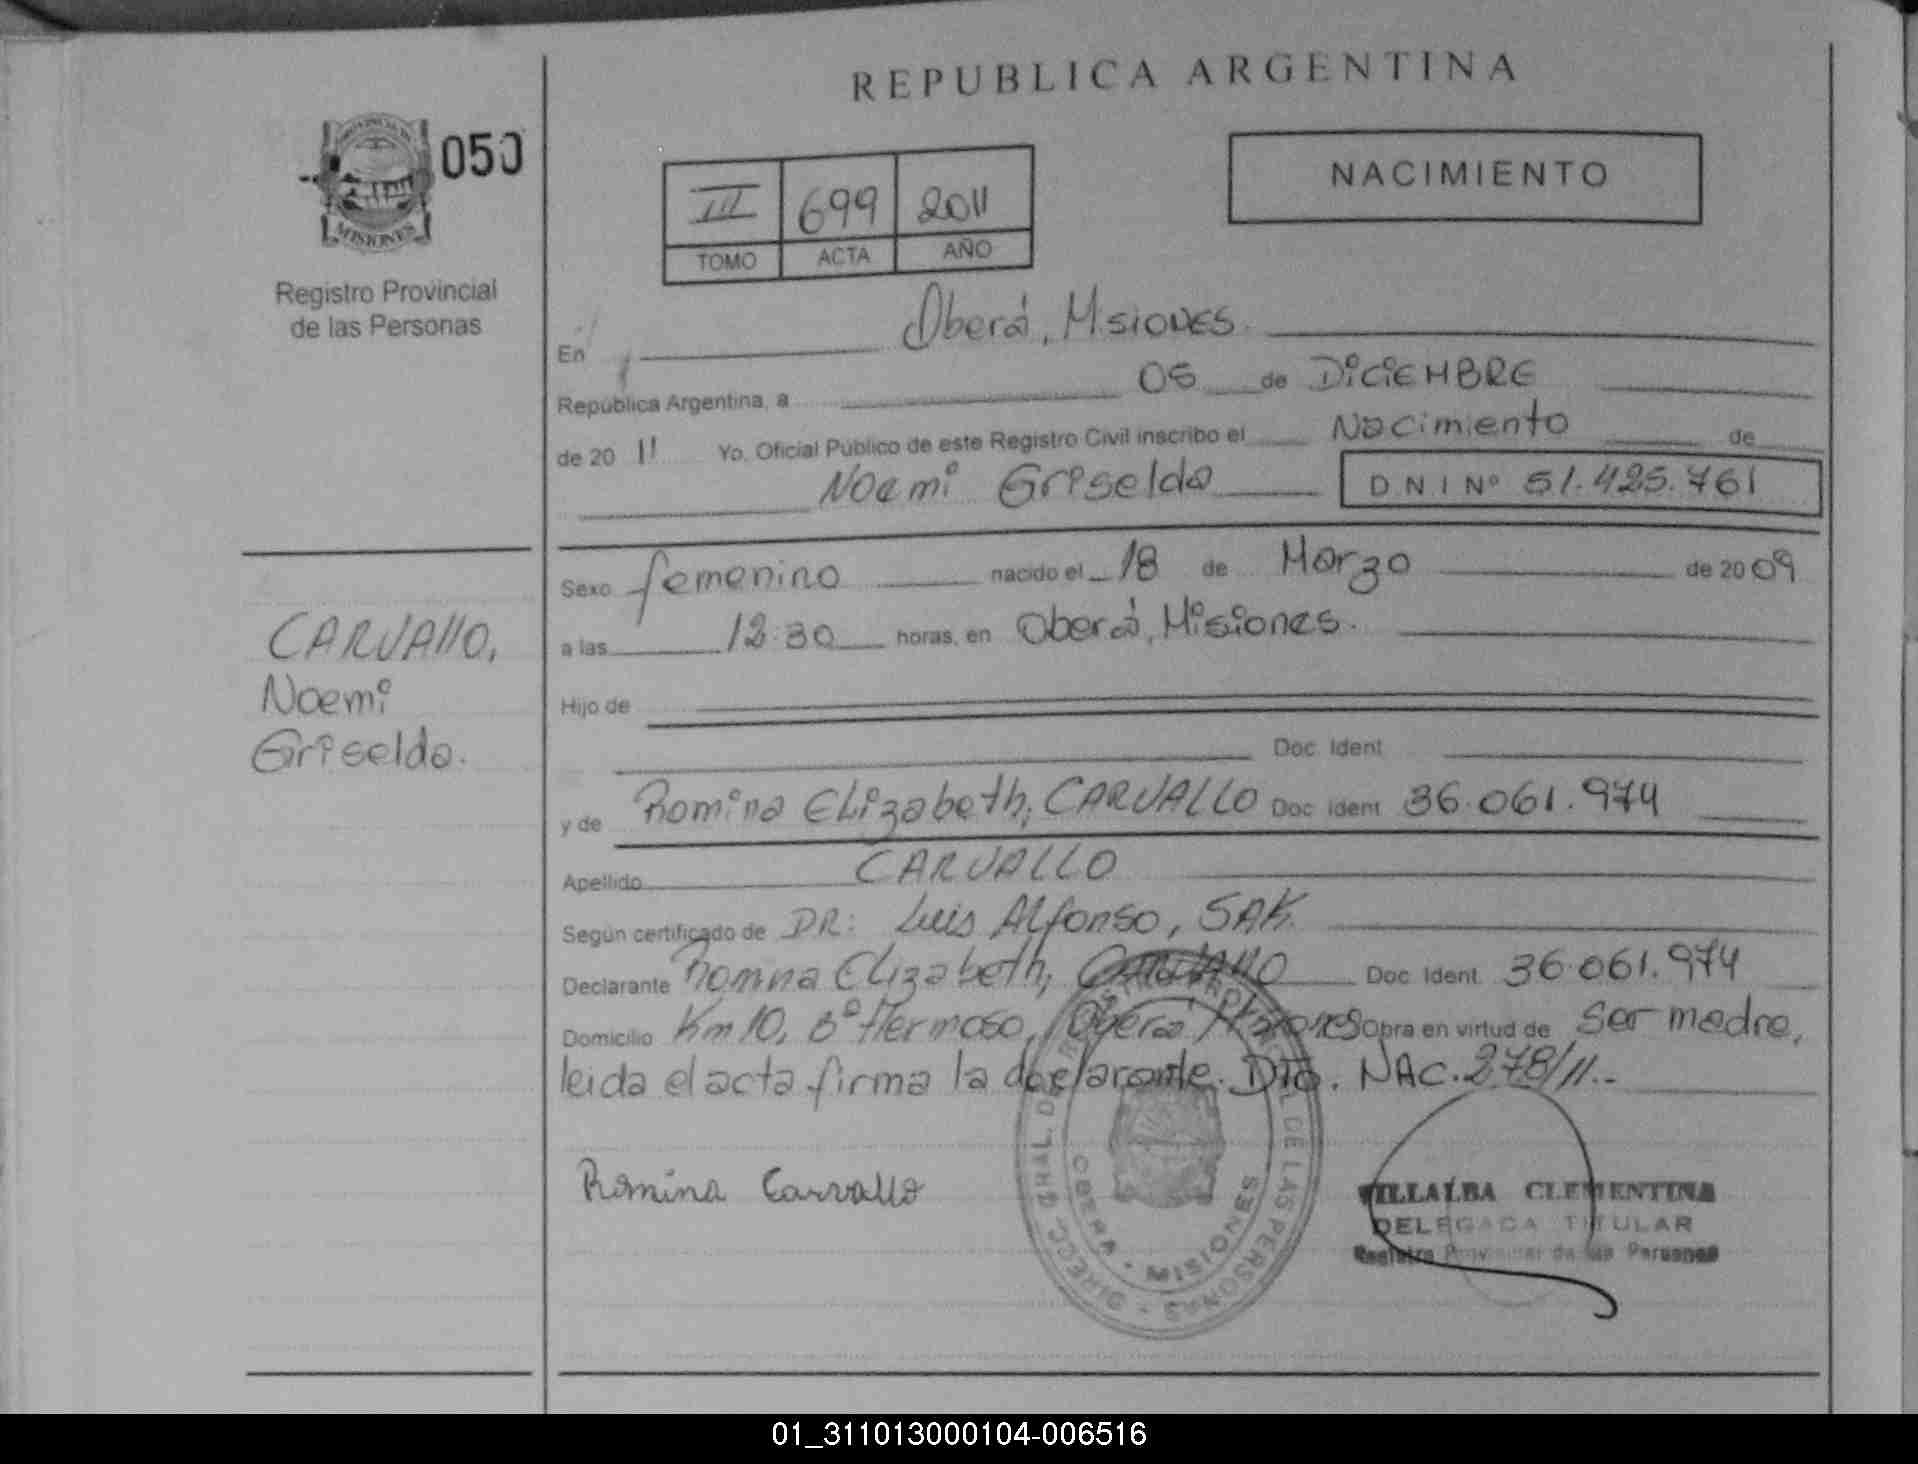 REPUBLICA ARGENTINA
PROVINCIA DE
MISIONES
050
Registro Provincial
de las Personas
NACIMIENTO
III 699 2011
TOMO ACTA AÑO
En Oberá, Misiones.
República Argentina, a 05 de DiCiEMBRE
de 20 11 Yo, Oficial Público de este Registro Civil inscribo el Nacimiento de
Noemi Griselda D.N.I Nº 51.425.761
Sexo femenino nacido el 18 de Marzo de 2009
a las 12:30 horas, en Oberá, Misiones.
Hijo de
Doc. Ident.
y de Romina ELizabeth, CARVALLO Doc. Ident. 36.061.974
Apellido CARVALLO
Según certificado de DR: Luis Alfonso, SAK.
Declarante Romina Elizabeth, CARVAllO Doc. Ident. 36.061.974
Domicilio Km 10, Bº Hermoso, Oberá Misiones Obra en virtud de Ser madre,
leida el acta firma la declarante. DTO. NAC. 278/11.-
CARVAllO,
Noemi
Griselda.
Romina Carvallo
DIRECC. GRAL. DE REGISTRO PROVINCIAL DE LAS PERSONAS
OBERA - MISIONES
VILLALBA CLEMENTINA
DELEGADA TITULAR
Registro Provincial de las Personas
01_311013000104-006516